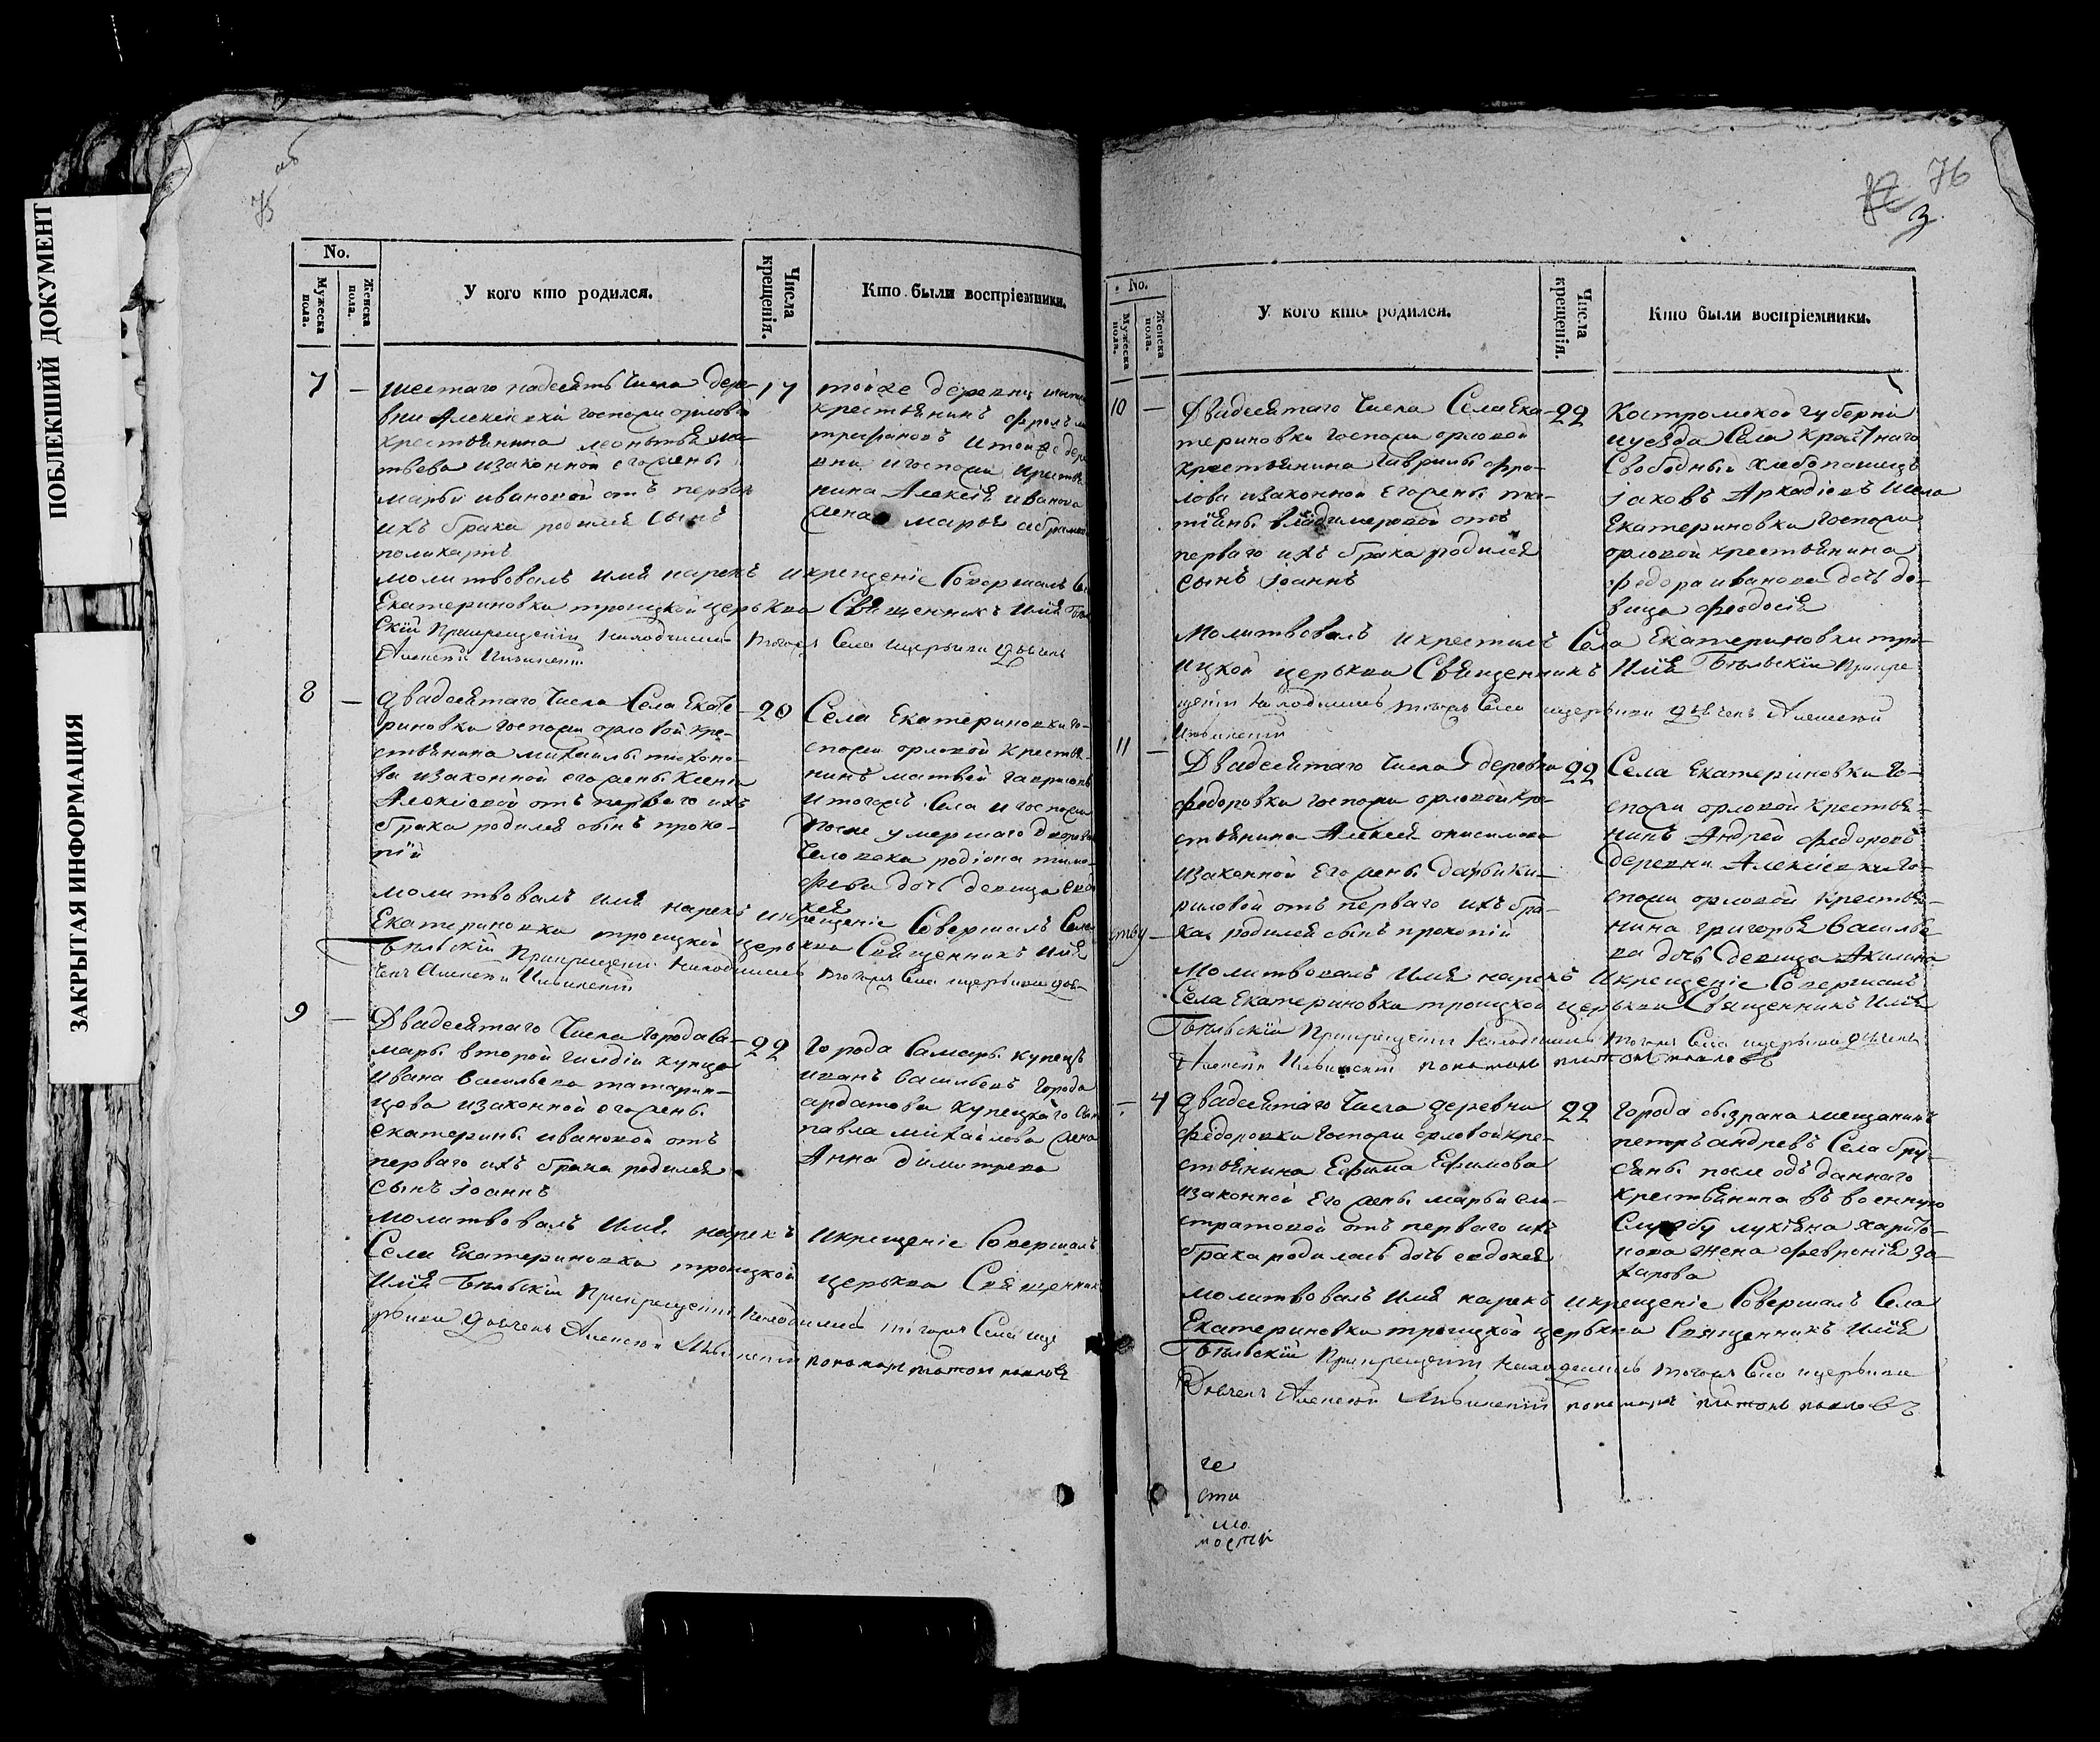 ПОБЛЕКШИЙ ДОКУМЕНТ
ЗАКРЫТАЯ ИНФОРМАЦИЯ
75 об
No.
Мужеска пола.
Женска пола.
У кого кто родился.
Числа крещенія.
Кто были воспріемники.
7 — шестаго надесять числа дере-
вни Алексіевки госпожи орловой
крестьянина леонтья ма-
твева изаконной его жены
марьи ивановой отъ перваго
ихъ брака родился сынъ
поликарпъ
17
тойже деревни
крестьянинъ фролъ
трифоновъ итойже дере
вни игоспожи крестья
нина Алексія иванова
жена марья
молитвовалъ имя нарекъ икрещеніе Совершалъ
Екатериновки троицкой церькви Священникъ Илія
скій Прикрещеніи находился тогожъ Села ицерькви дьяченъ
Алексей
8 — двадесятаго числа Села Екате-
риновки госпожи орловой кре-
стьянина михаилы тихоно-
ва изаконной его жены ксеніи
Алексіевой отъ перваго ихъ
брака родился сынъ проко-
пій
20
Села Екатериновки го-
спожи орловой крестья-
нинъ матвей гавриловъ
итогожъ Села и госпожи
после умершаго двороваго
человека родіона тимо-
феева дочь девица евдо
кея
молитвовалъ имя нарекъ икрещеніе Совершалъ Села
Екатериновки троицкой церькви Священникъ Илія
Бѣльскій Прикрещеніи находился тогожъ Села ицерькви дья-
ченъ Алексей
9 — Двадесятаго числа города Са-
мары второй гилдіи купца
ивана васильева татарин-
цова изаконной его жены
екатерины ивановой отъ
перваго ихъ брака родился
сынъ іоаннъ
22
города Самары купецъ
иванъ васильевъ города
ардатова купецкаго сына
павла михайлова жена
Анна димитрева
молитвовалъ имя нарекъ икрещеніе Совершалъ
Села Екатериновки троицкой церькви Священникъ
Илія Бѣльскій Прикрещеніи находился тогожъ Села ице
рькви дьяченъ Алексей пономарь платонъ павловъ
76
3
No.
Мужеска пола.
Женска пола.
У кого кто родился.
Числа крещенія.
Кто были воспріемники.
10 — Двадесятаго числа Села Ека-
териновки госпожи орловой
крестьянина гаврилы фро-
лова изаконной его жены та-
тіяны владимеровой отъ
перваго ихъ брака родился
сынъ іоаннъ
22
Костромской губерни
иуезда Села
Свободный хлебопашецъ
іаковъ Аркадіевъ исела
Екатериновки госпожи
орловой крестьянина
федора иванова дочь де-
вица феодосія
Молитвовалъ икрестилъ Села Екатериновки тро-
ицкой церькви Священникъ Илія Бѣльскій Прикре
щеніи находился тогожъ Села ицерькви дьяченъ Алексей
11 — Двадесятаго числа деревни
федоровки госпожи орловой кре-
стьянина Алексея анисимова
изаконной его жены дарьи ки-
риловой отъ перваго ихъ бра-
ка родился сынъ прокопій
22
Села Екатериновки го-
спожи орловой крестья-
нинъ Андрей федоровъ
деревни Алексіевки го-
спожи орловой крестья-
нина григорья василье
ва дочь девица Акилина
Молитвовалъ имя нарекъ икрещеніе Совершалъ
Села Екатериновки троицкой церькви Священникъ Илія
Бѣльскій Прикрещеніи находился тогожъ Села ицерькви дьяченъ
Алексей пономарь платонъ павловъ
— 4 двадесятаго числа деревни
федоровки госпожи орловой кре-
стьянина Ефима Ефимова
изаконной его жены марьи ели-
стратовой отъ перваго ихъ
брака родилась дочь евдокея
22
города сызрана мещанинъ
петръ андревъ Села бру-
сяны после одъданнаго
крестьянина въ военную
Службу лукіяна харито-
нова жена февронія за-
харова
молитвовалъ имя нарекъ икрещеніе Совершалъ Села
Екатериновки троицкой церькви Священникъ Илія
Бѣльскій Прикрещеніи находился тогожъ Села ицерькви
Дьяченъ Алексей пономарь платонъ павловъ
че
сти
мости